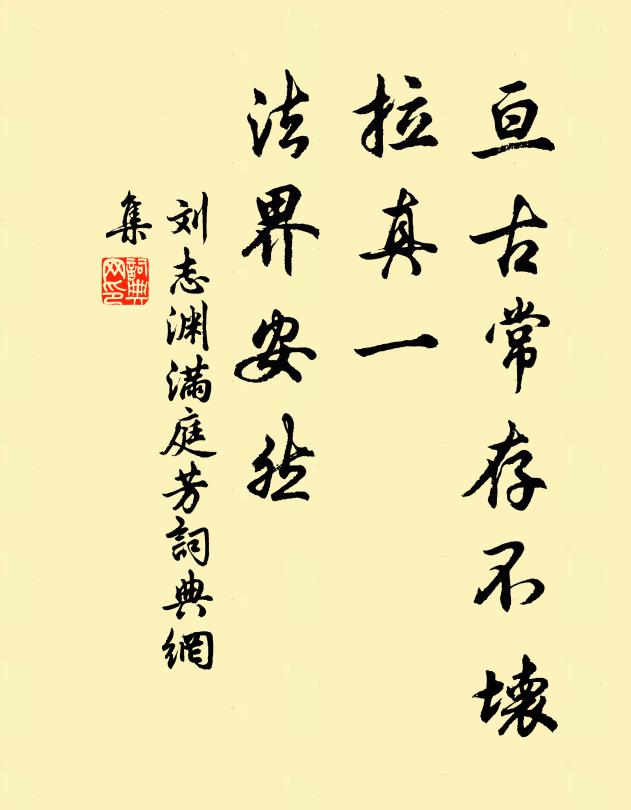 亘古常存不壞
拉真一
法界安然
刘志渊满庭芳詞典網
集
詞典
网印